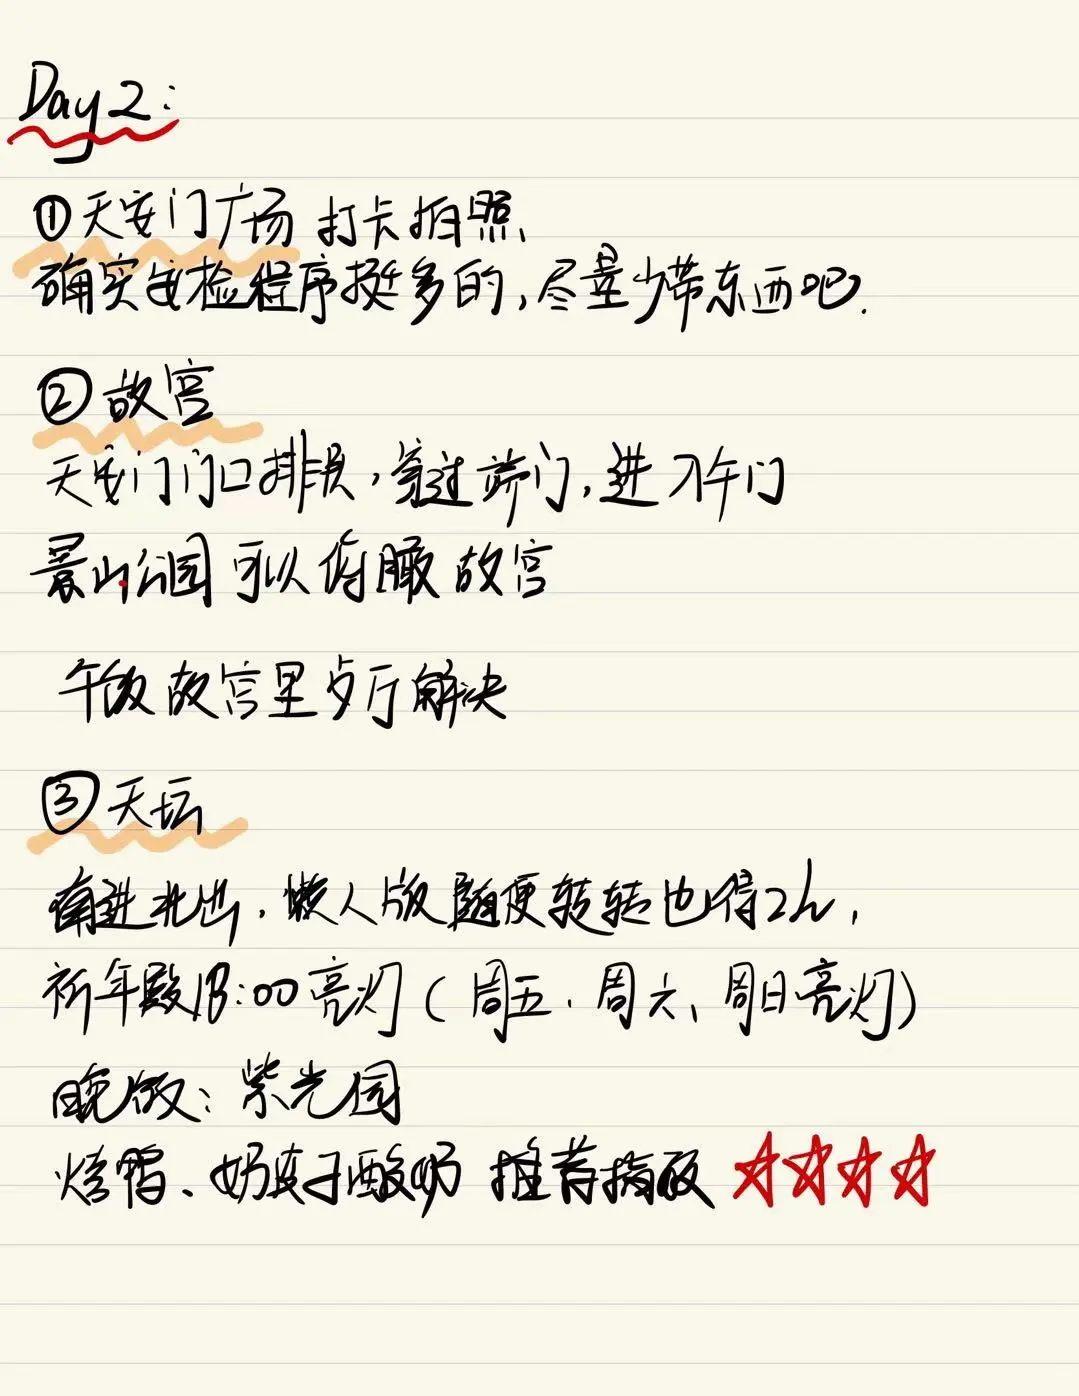 Day2:
①天安门广场 打卡拍照
确实安检程序挺多的,尽量少带东西吧.
②故宫
天安门门口排队,穿过端门,进入午门
景山公园 可以俯瞰故宫
午饭故宫里歺厅解决
③天坛
南进北出,懒人版随便转转也得2h,
祈年殿18:00亮灯(周五、周六、周日亮灯)
晚饭:紫光园
烤鸭、奶皮子酸奶 推荐指数 ☆☆☆☆